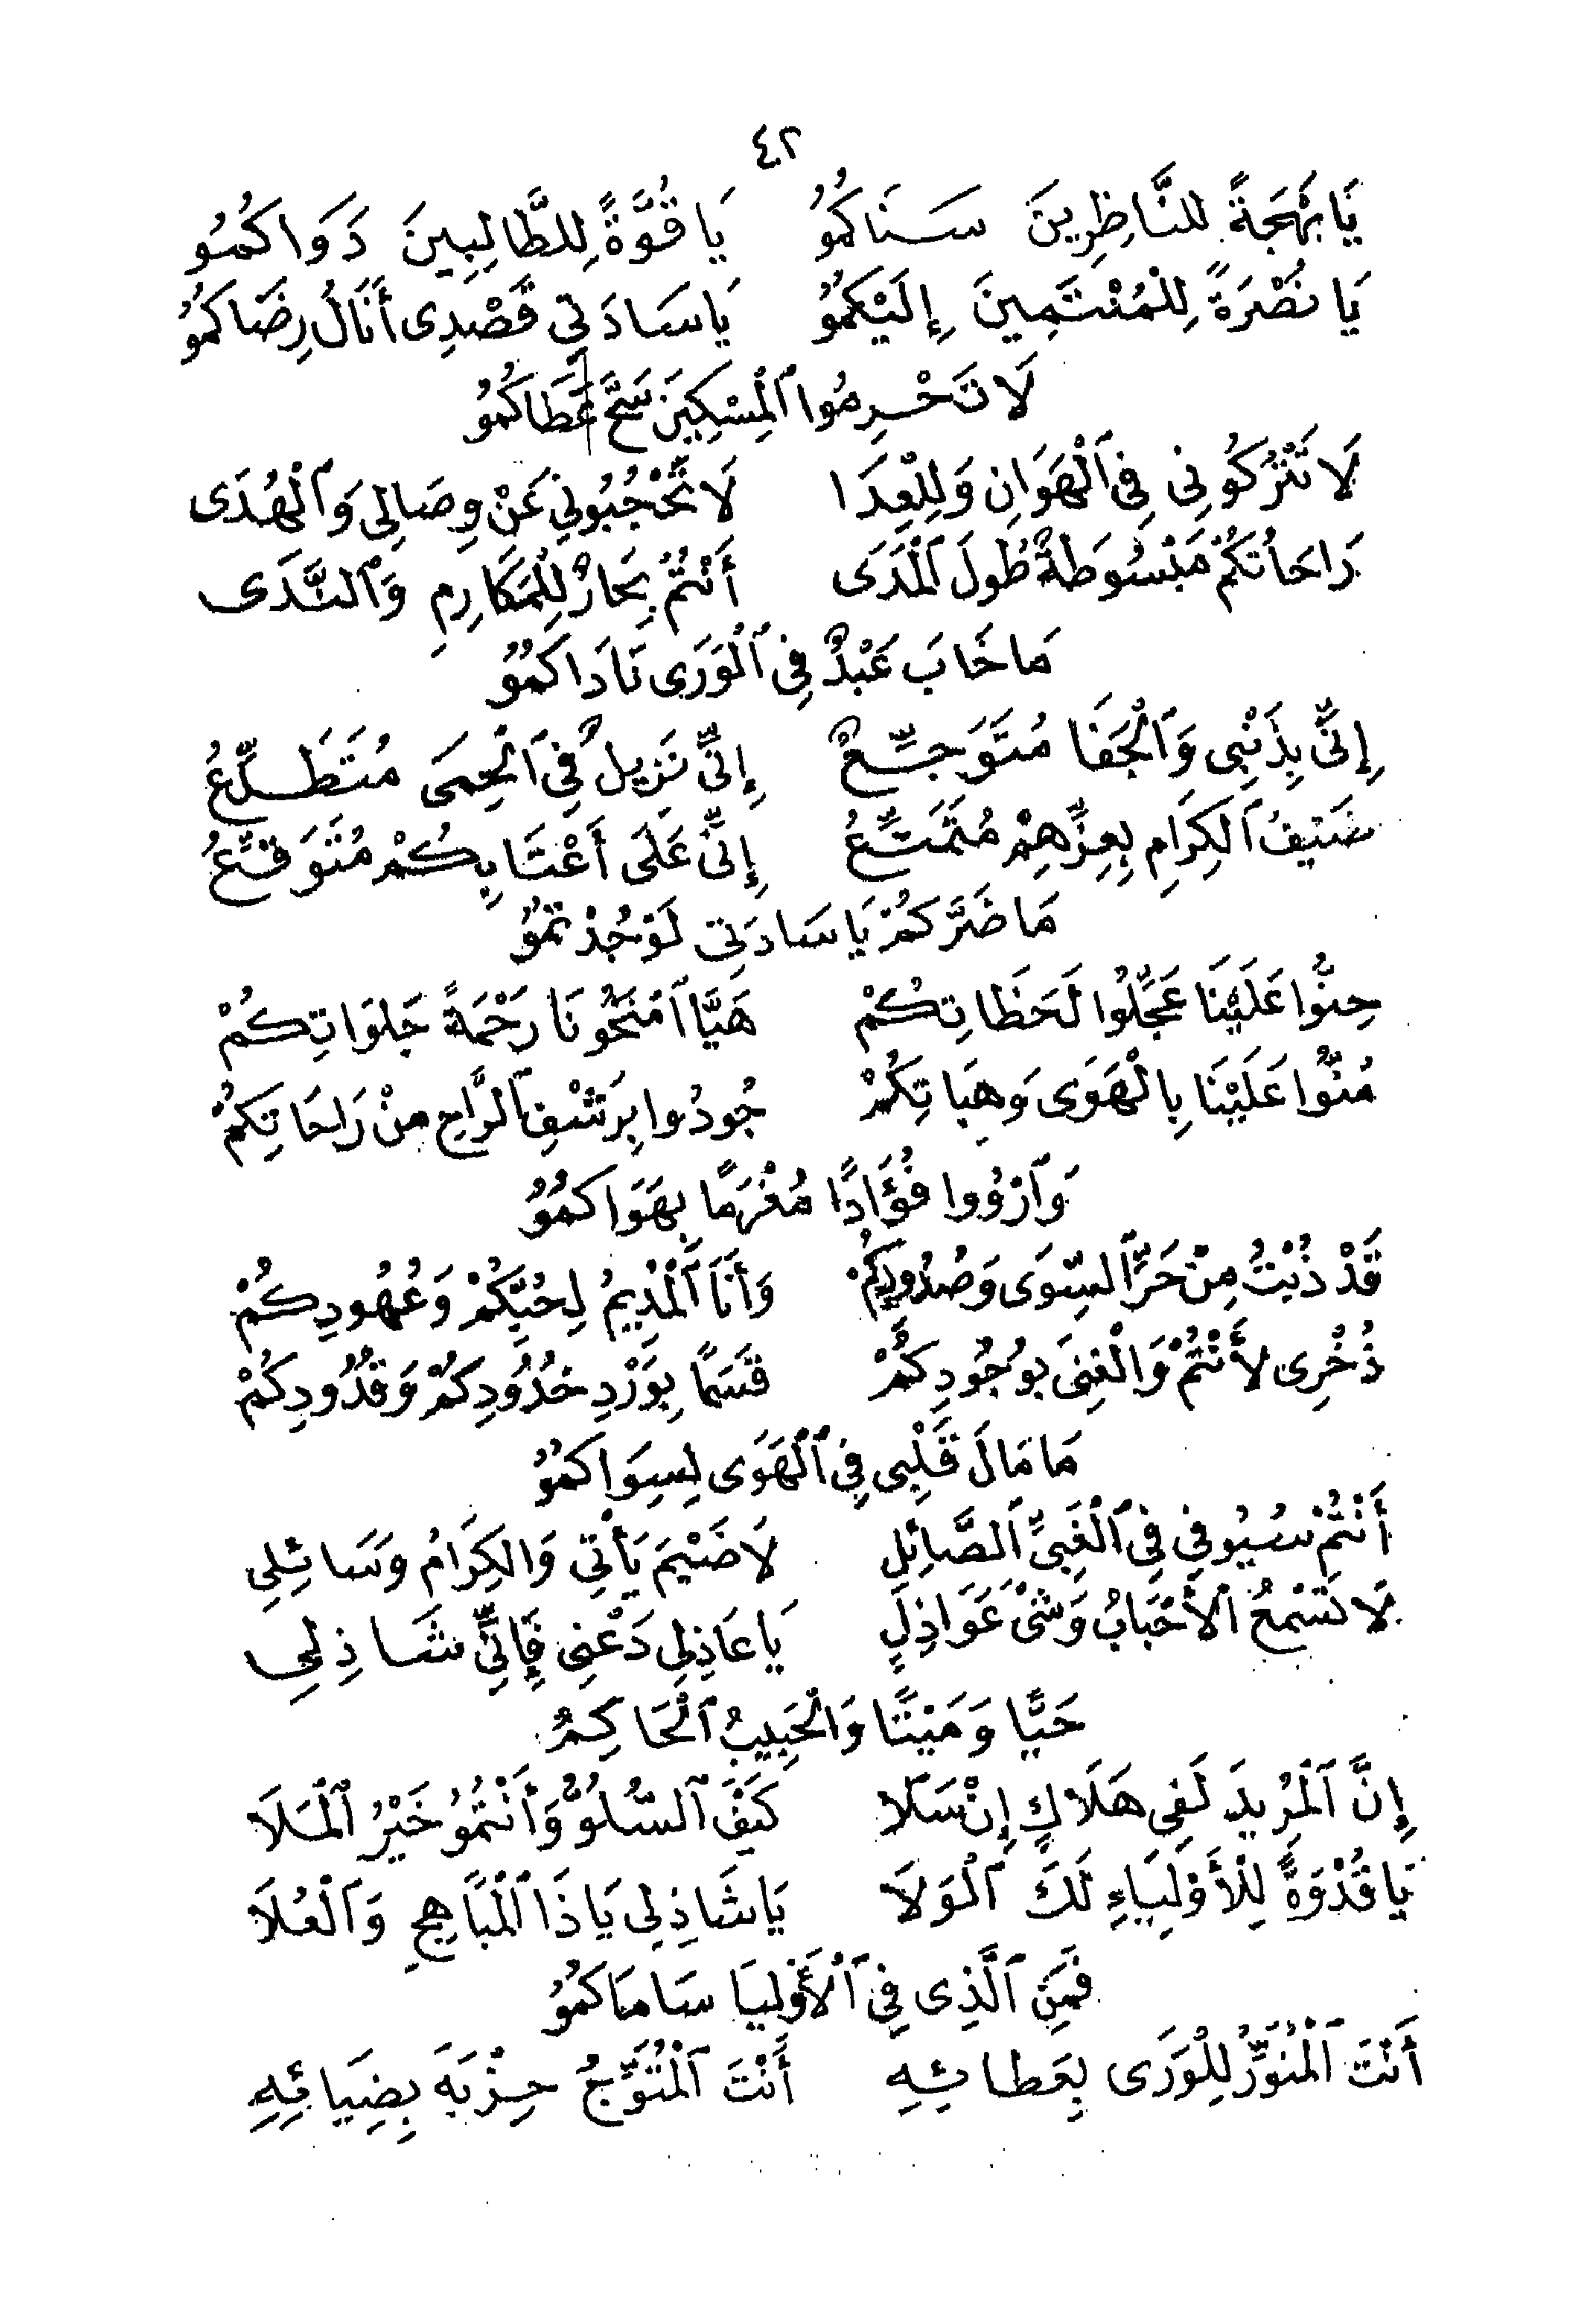 ٤٢
يَا بَهْجَةً لِلنَّاظِرِينَ سَنَاكُمُو يَا قُوَّةً لِلطَّالِبِينَ دَوَاكُمُو
يَا نُصْرَةً لِلْمُنْتَمِينَ إِلَيْكُمُو يَا سَادَتِي قَصْدِى أَنَالُ رِضَاكُمُو
لَا تَحْرِمُوا ٱلْمِسْكِينَ سَحَّ عَطَاكُمُو
لَا تَتْرُكُونِى فِى ٱلْهَوَانِ وَلِلْعِدَا لَا تَحْجُبُونِي عَنْ وِصَالِى وَٱلْهُدَى
رَاحَاتُكُمْ مَبْسُوطَةٌ طُولَ ٱلْمَدَى أَنْتُمْ بِحَارٌ لِلْمَكَارِمِ وَٱلنَّدَى
مَا خَابَ عَبْدٌ فِى ٱلْوَرَى نَادَاكُمُو
إِنِّى بِذَنْبِى وَٱلْجَفَا مُتَوَجِّعٌ إِنِّى نَزِيلٌ فِى ٱلْحِمَى مُتَطَلِّعُ
ضَيْفُ ٱلكِرَامِ بِعِزِّهِمْ مُتَمَتِّعُ إِنِّى عَلَى أَعْتَابِكُمْ مُتَوَقِّعُ
مَا ضَرَّكُمْ يَا سَادَتِى لَوْ جُدْتُمُو
حِنُّوا عَلَيْنَا عَجِّلُوا لَحَظَاتِكُمْ هَيَّا ٱمْنَحُونَا رَحْمَةً جَلَوَاتِكُمْ
مُنُّوا عَلَيْنَا بِالْهَوَى وَهِبَاتِكُمْ جُودُوا بِرَشْفِ ٱلرَّاحِ مِنْ رَاحَاتِكُمْ
وَٱرْوُوا فُؤَادًا مُغْرَمًا بِهَوَاكُمُو
قَدْ ذُبْتُ مِنْ حَرِّ ٱلسِّوَى وَصُدُودِكُمْ وَأَنَا ٱلْمُدِيمُ لِحُبِّكُمْ وَعُهُودِكُمْ
ذُخْرِى لأَنْتُمْ وَالْغِنَى بِوُجُودِكُمْ قَسَمًا بِوَرْدِ خُدُودِكُمْ وَقُدُودِكُمْ
مَا مَالَ قَلْبِى فِى ٱلْهَوَى لِسِوَاكُمُو
أَنْتُمْ سُيُوفِي فِى ٱلْغَبِىِّ ٱلصَّائِلِ لَا ضَيْمَ يَأْتِى وَالكِرَامُ وَسَائِلِى
لَا تَسْمَعُ ٱلْأَحْبَابُ وَشْىَ عَوَاذِلٍ يَا عَاذِلِى دَعْنِى فَإِنِّى شَاذِلِى
حَيًّا وَمَيْتًا وَالْحَبِيبُ ٱلْحَاكِمُ
إِنَّ ٱلْمُرِيدَ لَفِى هَلَاكٍ إِنْ سَلَا كَيْفَ ٱلسُّلُوُّ وَأَنْتُمُو خَيْرُ ٱلْمَلَا
يَا قُدْوَةً لِلْأَوْلِيَاءِ لَكَ ٱلْوَلَا يَا شَاذِلِى يَا ذَا ٱلْمَبَاهِجِ وَٱلْعُلَا
فَمَنِ ٱلَّذِى فِى ٱلْأَوْلِيَا سَامَاكُمُو
أَنْتَ ٱلْمُنَوِّرُ لِلْوَرَى بِعَطَائِهِ أَنْتَ ٱلْمُتَوِّجُ حِزْبَهُ بِضِيَائِهِ